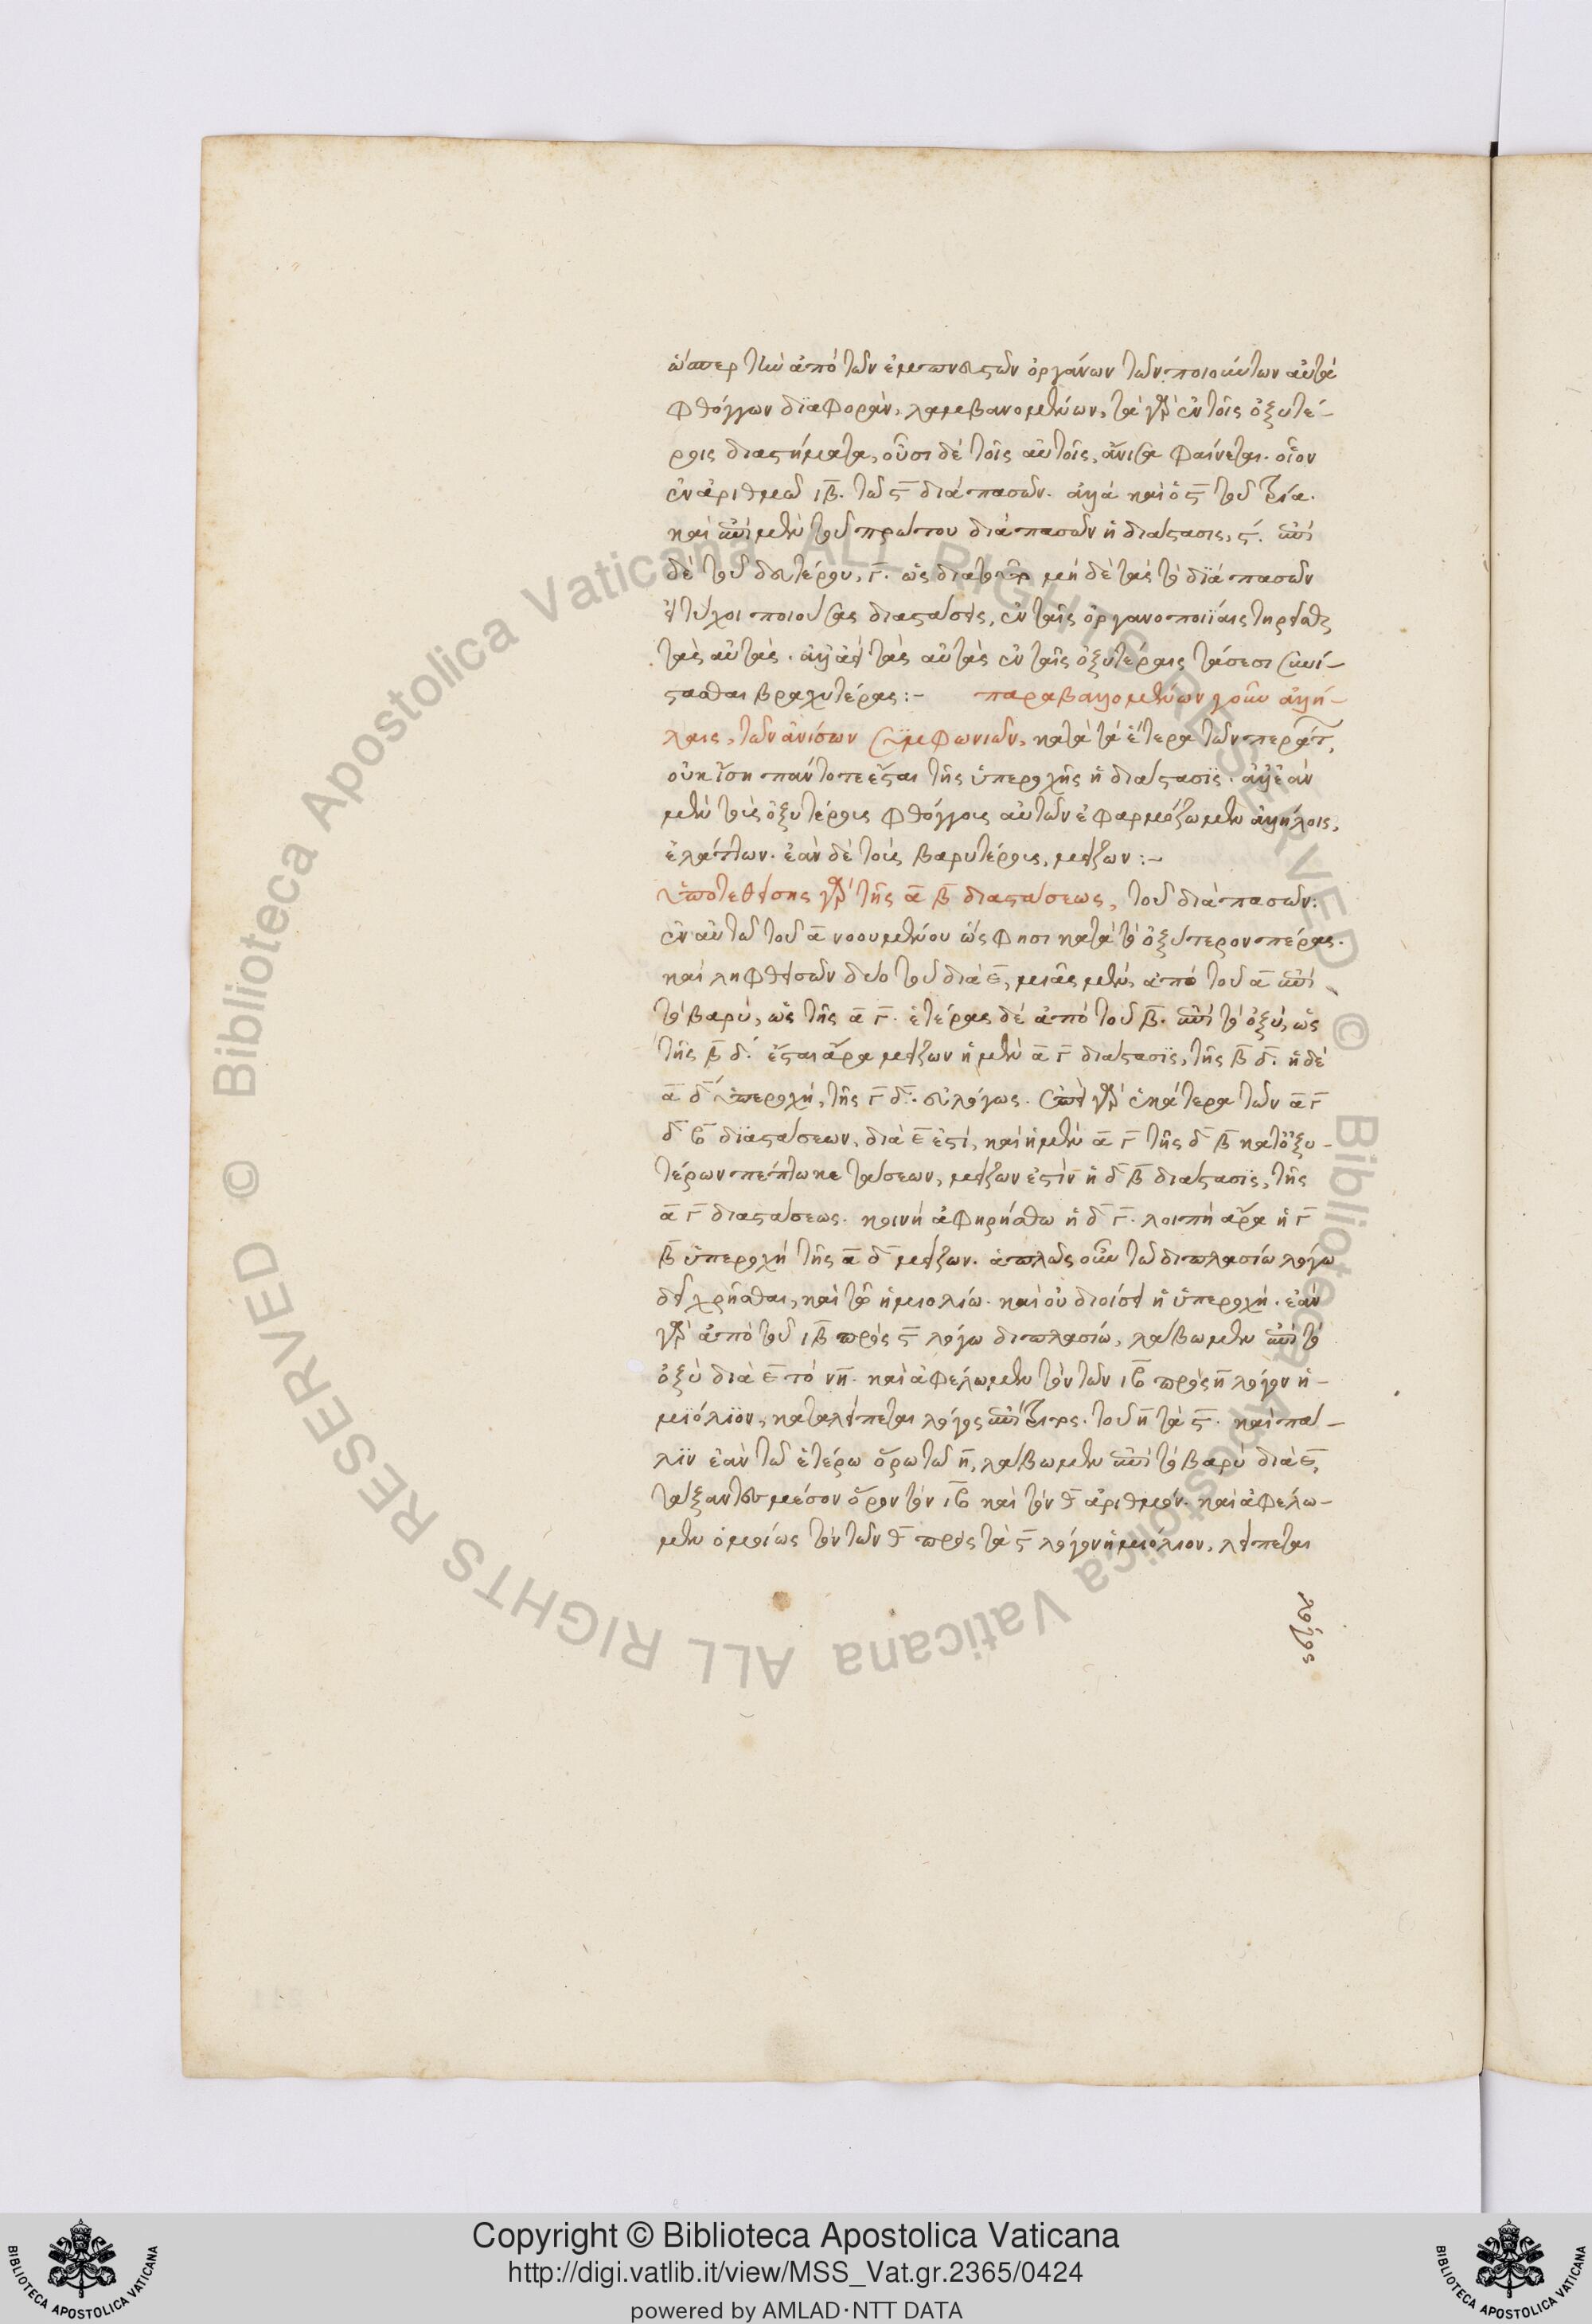 ὥσπερ τὴν ἀπὸ τῶν ἐμπνευστῶν ὀργάνων τῶν ποιούντων αὐτὰ
φθόγγων διαφορὰν, λαμβανομένων, τὰ γὰρ ἐν τοῖς ὀξυτέ-
ροις διαστήματα, οὖσι δὲ τοῖς αὐτοῖς, ἄνισα φαίνεται. οἷον
ἐν ἀριθμῷ ιβ. τῷ ς διὰ πασῶν. ἀλλὰ καὶ ὁ ς τοῦ τρία.
καὶ ἐπὶ μὲν τοῦ πρώτου διὰ πασῶν ἡ διάστασις, ς. ἐπὶ
δὲ τοῦ δευτέρου, γ. ὡς διὰ μὴ δὲ τὰς τὸ διὰ πασῶν
εἰ τύχοι ποιούσας διαστάσεις, ἐν ταῖς ὀργανοποιΐαις τηρεῖσθαι
τὰς αὐτὰς. ἀλλ' ἀεὶ τὰς αὐτὰς ἐν ταῖς ὀξυτέραις τάσεσι συνί-
στασθαι βραχυτέρας:- παραβαλλομένων γοῦν ἀλλή-
λαις, τῶν ἀνίσων συμφωνιῶν, κατὰ τὰ ἕτερα τῶν περάτ,
οὐκ ἴση πάντοτε ἔσται τῆς ὑπεροχῆς ἡ διάστασις. ἀλλ' ἐὰν
μὲν τοῖς ὀξυτέροις φθόγγοις αὐτῶν ἐφαρμόζωμεν ἀλλήλοις,
ἐλάττων. ἐὰν δὲ τοῖς βαρυτέροις, μείζων:-
ὑποτεθείσης γὰρ τῆς α β διαστάσεως, τοῦ διὰ πασῶν.
ἐν αὐτῷ τοῦ α νοουμένου ὥς φησι κατὰ τὸ ὀξύτερον πέρας.
καὶ ληφθεισῶν δύο τοῦ διὰ ε, μιᾶς μὲν, ἀπὸ τοῦ α ἐπὶ
τὸ βαρύ, ὡς τῆς α γ. ἑτέρας δὲ ἀπὸ τοῦ β. ἐπὶ τὸ ὀξύ, ὡς
τῆς β δ. ἔσται ἄρα μείζων ἡ μὲν α γ διάστασις, τῆς β δ. ἡ δὲ
α δ ὑπεροχή, τῆς γ δ. εὐλόγως. ἐπεὶ γὰρ ἑκάτερα τῶν α γ
δ β διαστάσεων, διὰ ε ἐστί, καὶ ἡ μὲν α γ τῆς δ β κατ' ὀξυ-
τέρων πέπτωκε τάσεων, μείζων ἐστὶν ἡ δ β διάστασις, τῆς
α γ διαστάσεως. κοινὴ ἀφηρήσθω ἡ δ γ. λοιπὴ ἄρα ἡ γ
β ὑπεροχὴ τῆς α δ μείζων. ἁπλῶς οὖν τῷ διπλασίῳ λόγῳ
δεῖ χρῆσθαι, καὶ τῷ ἡμιολίῳ. καὶ οὐ διοίσει ἡ ὑπεροχή. ἐὰν
γὰρ ἀπὸ τοῦ ιβ πρὸς ς λόγῳ διπλασίῳ, λάβωμεν ἐπὶ τὸ
ὀξὺ διὰ ε τὸν η. καὶ ἀφέλωμεν τὸν τῶν ιβ πρὸς η λόγον ἡ-
μιόλιον, καταλείπεται λόγος ἐπίτριτος. τοῦ η τὰ ς. καὶ πά-
λιν ἐὰν τῷ ἑτέρῳ ὅρῳ τῷ η, λάβωμεν ἐπὶ τὸ βαρὺ διὰ ε,
τάξαντες μέσον ὅρον τὸν ιβ καὶ τὸν θ ἀριθμόν. καὶ ἀφέλω-
μεν ὁμοίως τὸν τῶν θ πρὸς τὰ ς λόγον ἡμιόλιον, λείπεται
λόγος
Copyright © Biblioteca Apostolica Vaticana
http://digi.vatlib.it/view/MSS_Vat.gr.2365/0424
powered by AMLAD·NTT DATA